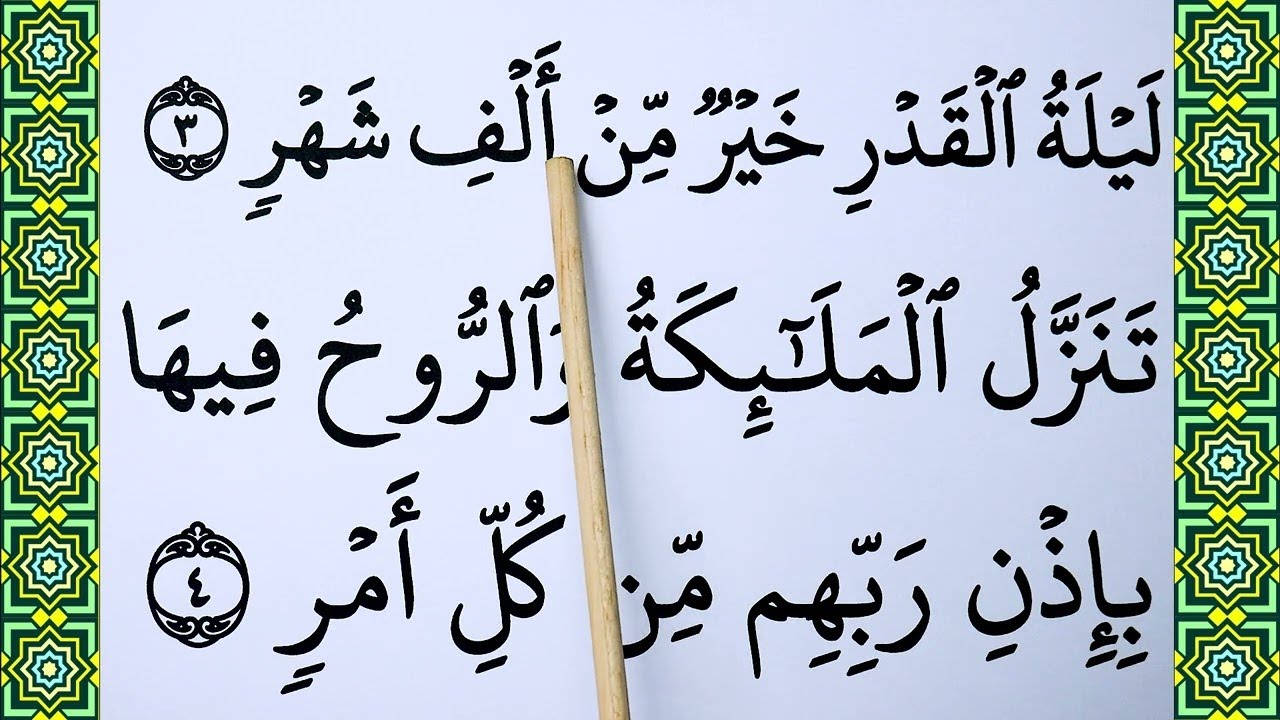 لَيۡلَةُ ٱلۡقَدۡرِ خَيۡرٌ مِّنۡ أَلۡفِ شَهۡرٍ ٣
تَنَزَّلُ ٱلۡمَلَٰٓئِكَةُ وَٱلرُّوحُ فِيهَا
بِإِذۡنِ رَبِّهِم مِّن كُلِّ أَمۡرٍ ٤